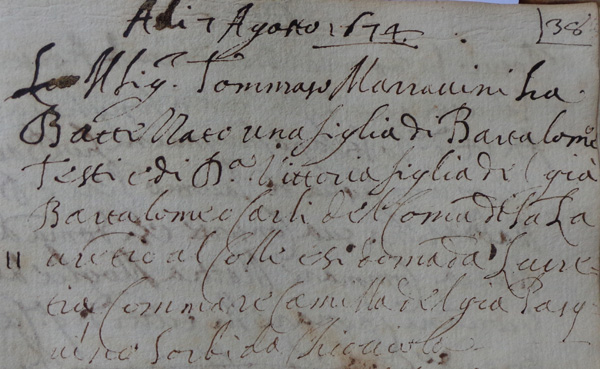 Adi 7 Agosto 1674 38
Il Sig.r Tommaso Marravini ha
Battezzato una figlia di Bartalomeo
Testi e di D.a Vittoria figlia del già
Bartalomeo Carli del Coma di
al Colle e si domāda Lucre-
tia Commare Camilla del gia Pasq
uino Sorbi da
11